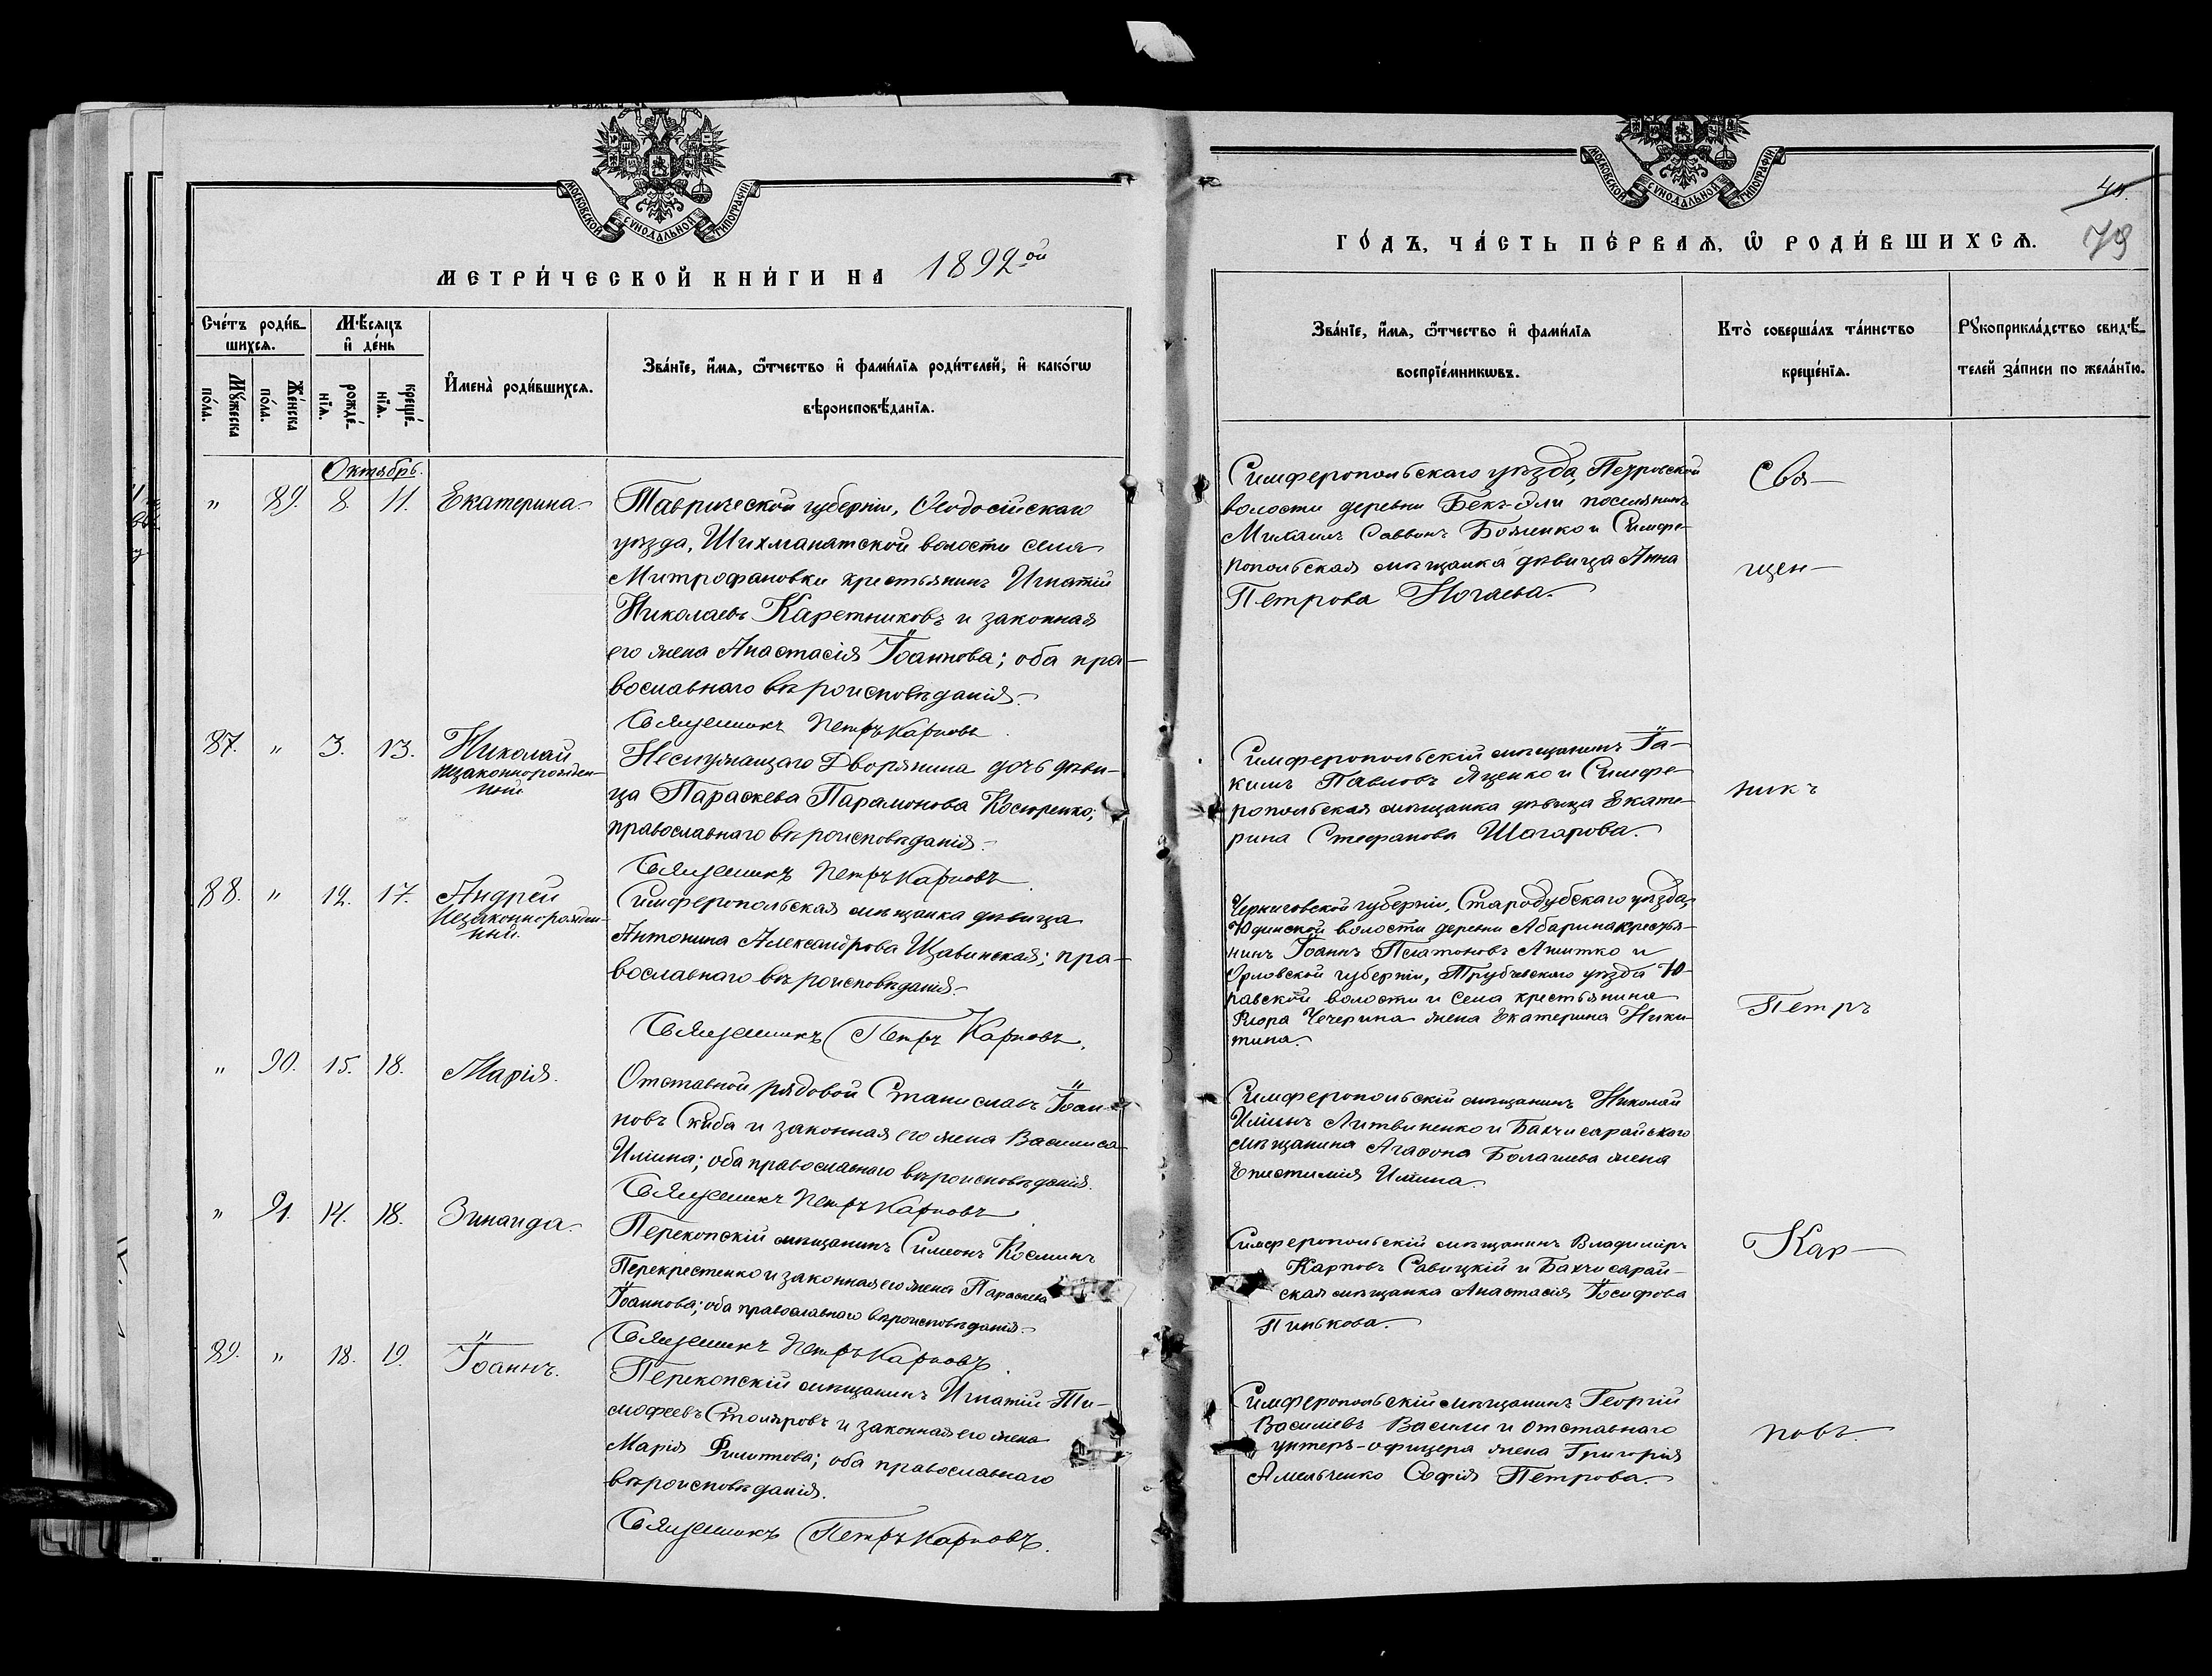 МОСКОВСКОЙ СУНОДАЛЬНОЙ ТИПОГРАФІИ
МЕТРИ́ЧЕСКОЙ КНИ́ГИ НА 1892ой
Сче́тъ роди́в-
шихсѧ.
Мѣ́сѧцъ
и҆ де́нь
Мꙋ́жеска
по́ла.
Же́нска
по́ла.
рожде́-
нїѧ.
креще́-
нїѧ.
И҆мена̀ роди́вшихсѧ.
Зва́нїе, и҆́мѧ, ѻ҆́тчество и҆ фами́лїѧ роди́телей, и҆ како́гѡ
вѣроисповѣ́данїѧ.
Октябрь.
" 89. 8. 11. Екатерина.
Таврической губерніи, Ѳеодосійскаго
уѣзда, Шихманатской волости села
Митрофановки крестьянинъ Игнатій
Николаевъ Каретниковъ и законная
его жена Анастасія Іоаннова; оба пра-
вославнаго вѣроисповѣданія.
Священникъ Петръ Карповъ
87. " 3. 13. Николай
незаконнорожден-
ный
Неслужащаго Дворянина дочь дѣви-
ца Параскева Парамонова Косюренко;
православнаго вѣроисповѣданія.
Священникъ Петръ Карповъ
88. " 12. 17. Андрей
Незаконнорожден-
ный.
Симферопольская мѣщанка дѣвица
Антонина Александрова Щавинская; пра-
вославнаго вѣроисповѣданія.
Священникъ Петръ Карповъ.
" 90. 15. 18. Марія.
Отставной рядовой Станиславъ Іоан-
новъ Скиба и законная его жена Василиса
Иліина; оба православнаго вѣроисповѣданія.
Священникъ Петръ Карповъ
" 91. 14. 18. Зинаида.
Перекопскій мѣщанинъ Симеонъ Косминъ
Перекрестенко и законная его жена Параскева
Іоаннова; оба православнаго вѣроисповѣданія.
Священникъ Петръ Карповъ.
89. " 18. 19. Іоаннъ.
Перекопскій мѣщанинъ Игнатій Ти-
мофеевъ Столяровъ и законная его жена
Марія Филиппова; оба православнаго
вѣроисповѣданія.
Священникъ Петръ Карповъ.
МОСКОВСКОЙ СУНОДАЛЬНОЙ ТИПОГРАФІИ
79
ГО́ДЪ, ЧА́СТЬ ПЕ́РВАѦ, Ѡ҆ РОДИ́ВШИХСѦ.
Зва́нїе, и҆́мѧ, ѻ҆́тчество и҆ фами́лїѧ
воспрїе́мникѡвъ.
Кто̀ соверша́лъ та́инство
креще́нїѧ.
Рꙋкоприкла́дство свидѣ́-
телей за́писи по жела́нїю.
Симферопольскаго уѣзда, Петровской
волости деревни Бекъ-Эли поселянинъ
Михаилъ Саввинъ Боженко и Симфе-
ропольская мѣщанка дѣвица Анна
Петрова Ногаева.
Свя-
щен-
Симферопольскій мѣщанинъ Іа-
кимъ Павловъ Яценко и Симфе-
ропольская мѣщанка дѣвица Екате-
рина Стефанова Шагарова.
никъ
Черниговской губерніи, Стародубскаго уѣзда,
волости деревни крестья-
нинъ Іоаннъ Платоновъ и
Орловской губерніи, Трубчевскаго уѣзда Ю-
равской волости и села крестьянина
Чечерина жена Екатерина Ники-
тина.
Петръ
Симферопольскій мѣщанинъ Николай
Иліинъ Литвиненко и Бахчисарайскаго
мѣщанина Агафона Болачева жена
Епистимія Иліина.
Симферопольскій мѣщанинъ Владиміръ
Карповъ Савицкій и Бахчисарай-
ская мѣщанка Анастасія Іосифова
Пинькова.
Кар-
Симферопольскій мѣщанинъ Георгій
Василіевъ Васили и отставнаго
унтеръ-офицера жена Григорія
Амельченко Софія Петрова.
повъ.